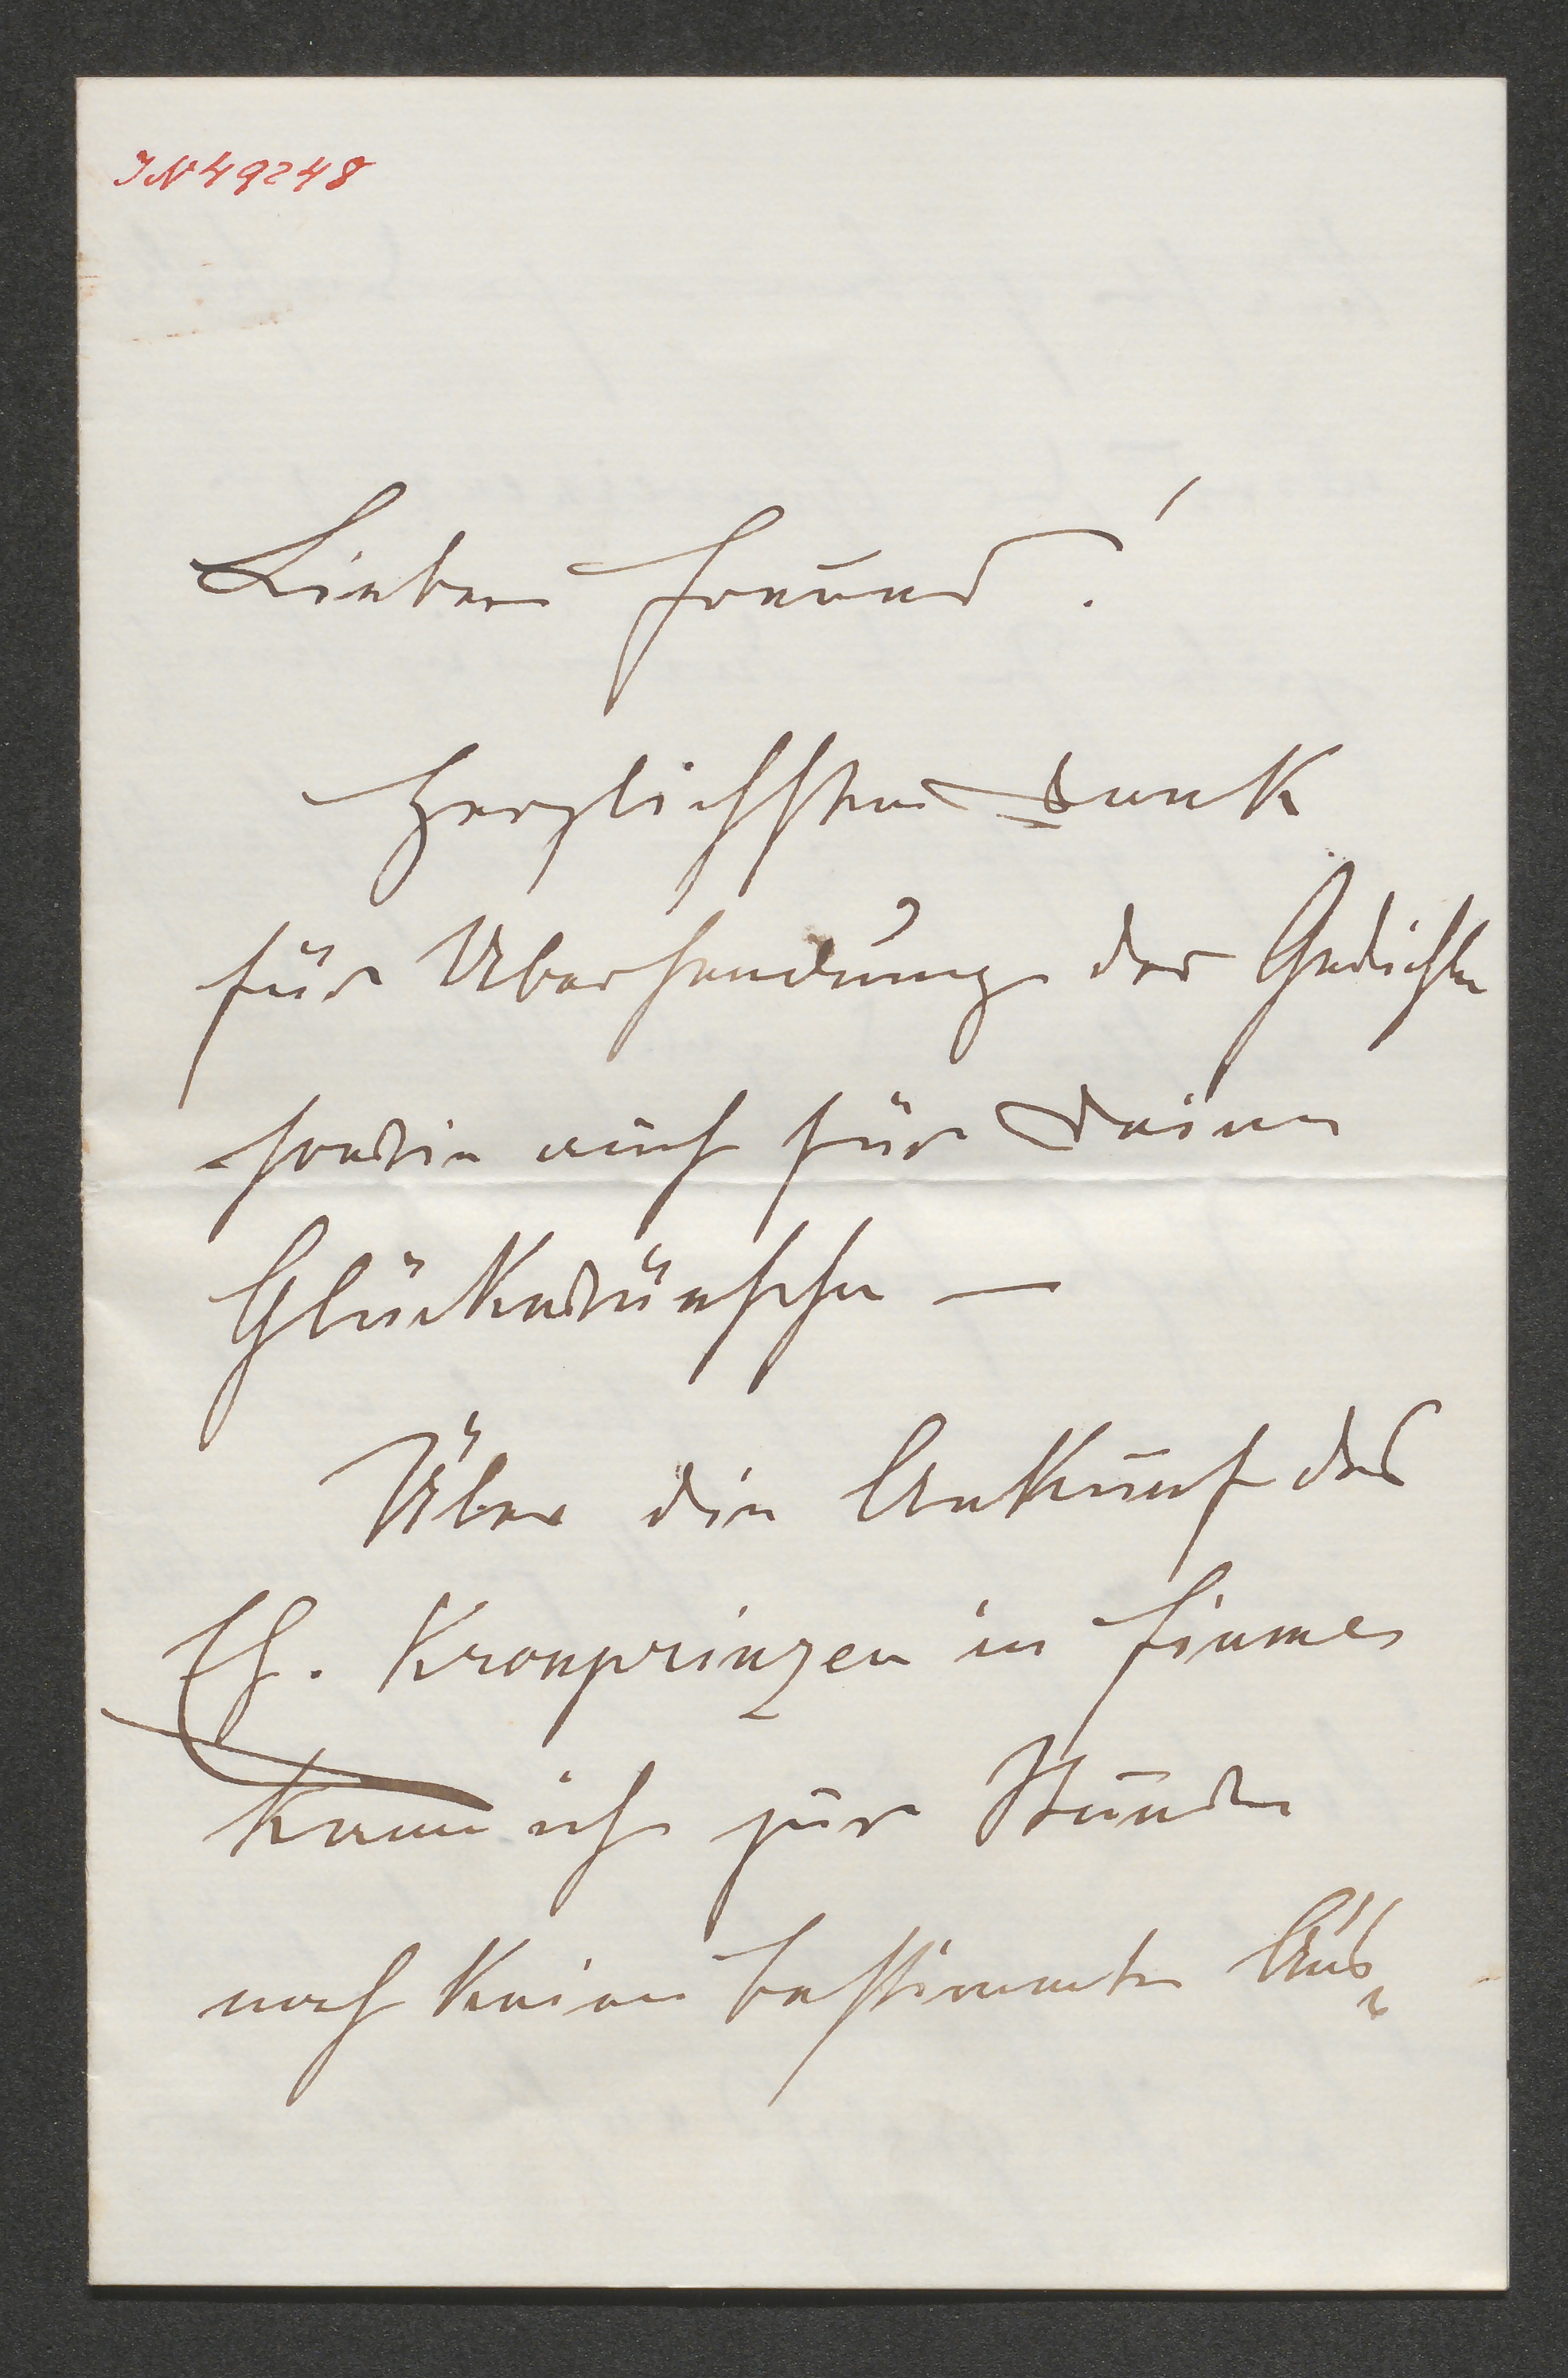 IN 49248
Lieber Freund!
Herzlichsten Dank
für Übersendung der Gedichte
sowie auch für Deine
Glückwünsche —
Über die Ankunft des
Kronprinzen in Fiume
kann ich zur Stunde
noch keine bestimmte Aus-